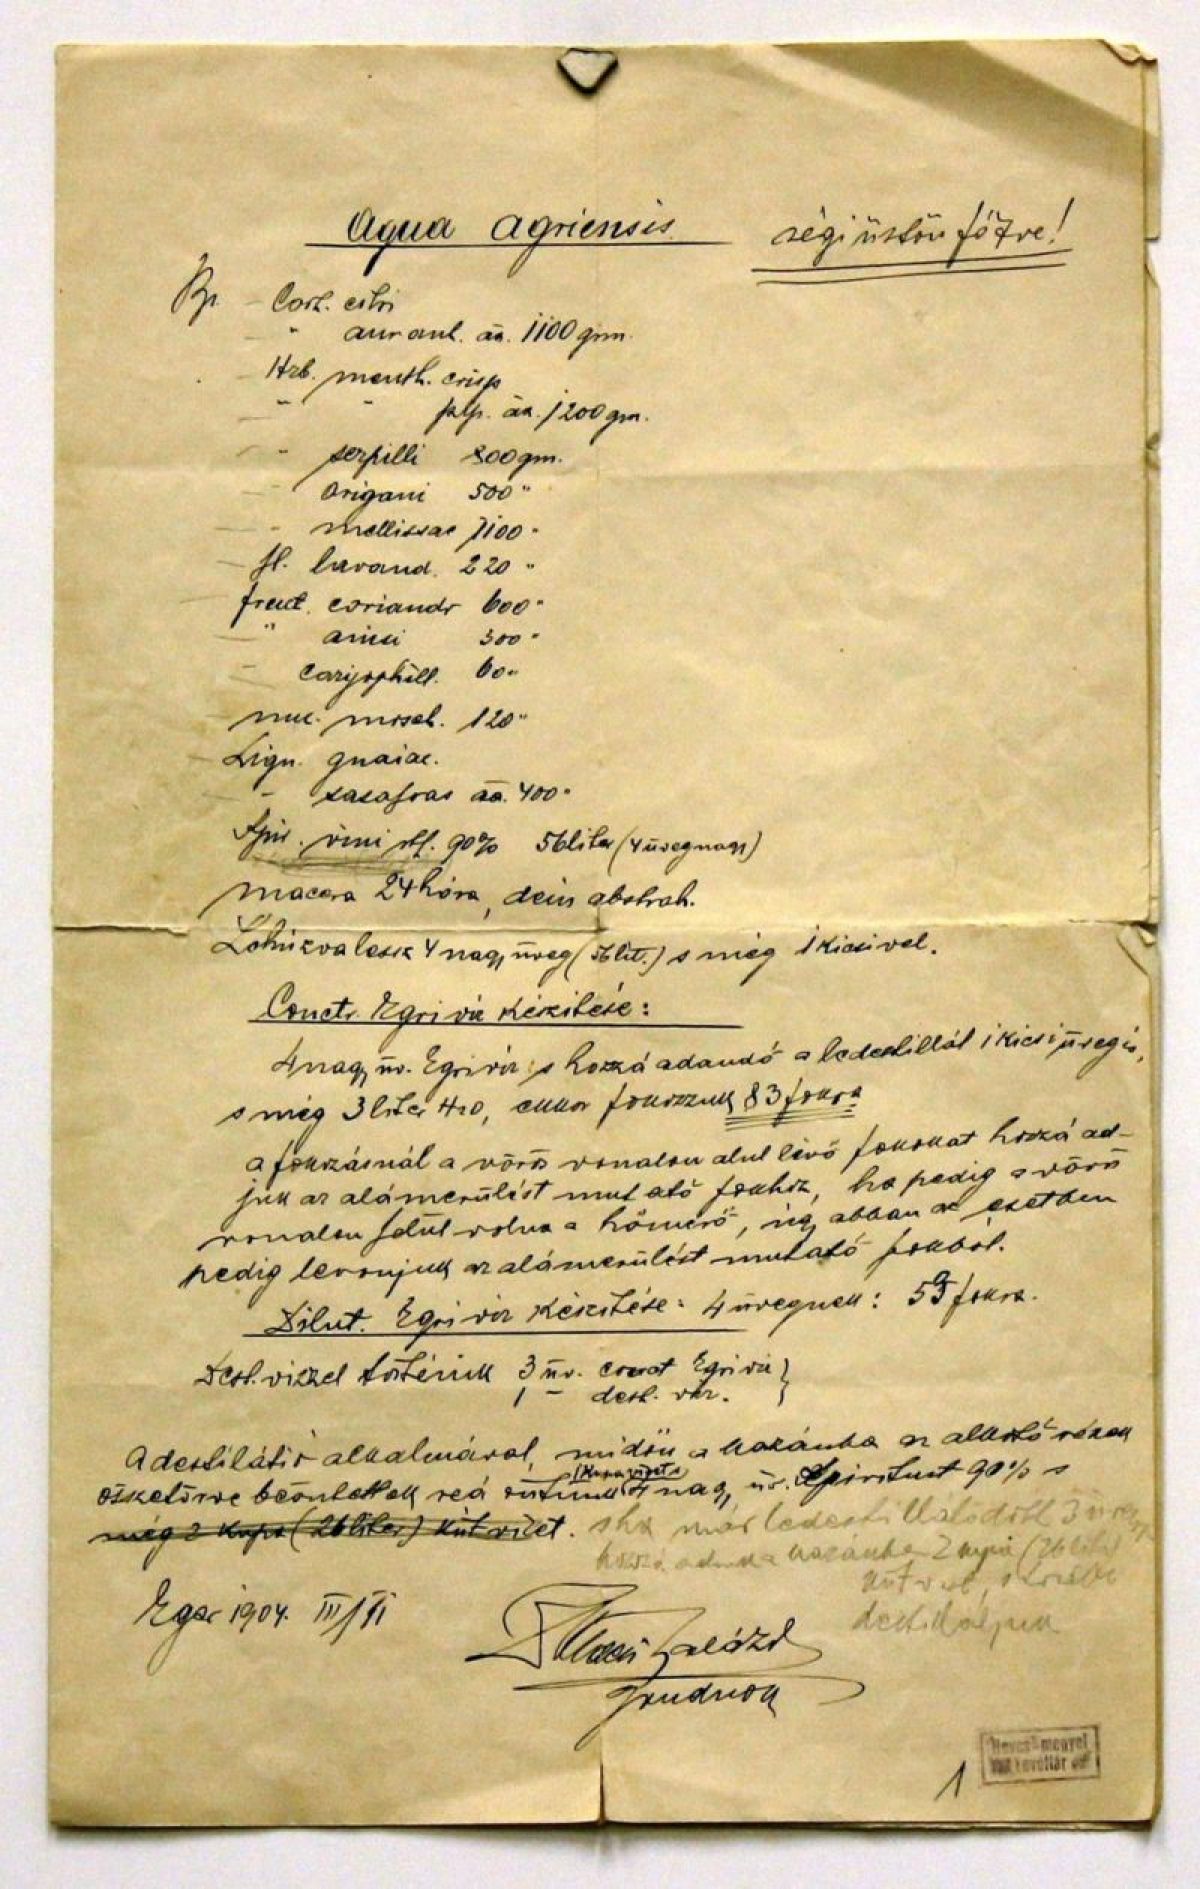 Aqua Agriensis. régi üstön főzve!
Rp. Cort. citri
" aurant. āā. 1100 grm.
Hrb. menth. crisp
" " pip. āā. 1200 gm.
" serpilli 800 gm.
origani 500 "
" mellissae 1100 "
fl. lavand. 220 "
fruct. coriandr 600 "
" anisi 300 "
caryophill. 60 "
nuc. mosch. 120 "
Lign. guaiac.
" sasafras āā. 400 "
Spir. vini 90% 56 liter (4 üveg nagy)
macera 24 hora, dein abstrah.
4 nagy üveg (56 lit.) s még 1 kicsivel.
Conctr. Egri víz készítése:
4 nagy üv. Egri víz s hozzá adandó a ledestillált 1 kicsi üvegis,
s még 3 liter H2O, ekkor fokozzuk 83 fokra
a fokozásnál a vörös vonalon alul lévő fokokat hozzá ad-
juk az alámerülést mutató fokhoz, ha pedig a vörös
vonalon felül volna a hőmérő, úgy abban az esetben
pedig levonjuk az alámerülést mutató fokból.
Dilut. Egri víz készítése: 4 üvegnek: 59 fokra.
Dest. vízzel 3 üv. conct Egri víz }
1 " dest. víz.
A destilátió alkalmával, midőn a kazánba az alkotó részek
beöntettek reá öntünk 4 nagy üv. Spiritust 90% s
még 2 kupa (26 liter) kút vizet. s ha már ledestillálódott 3 üveg
hozzá adunk a kazánba 2 kupa (26 liter)
kút vizet, s tovább
destilláljuk
Eger 1904. III/11
gondnok
Hevesmegyei
Levéltár
1